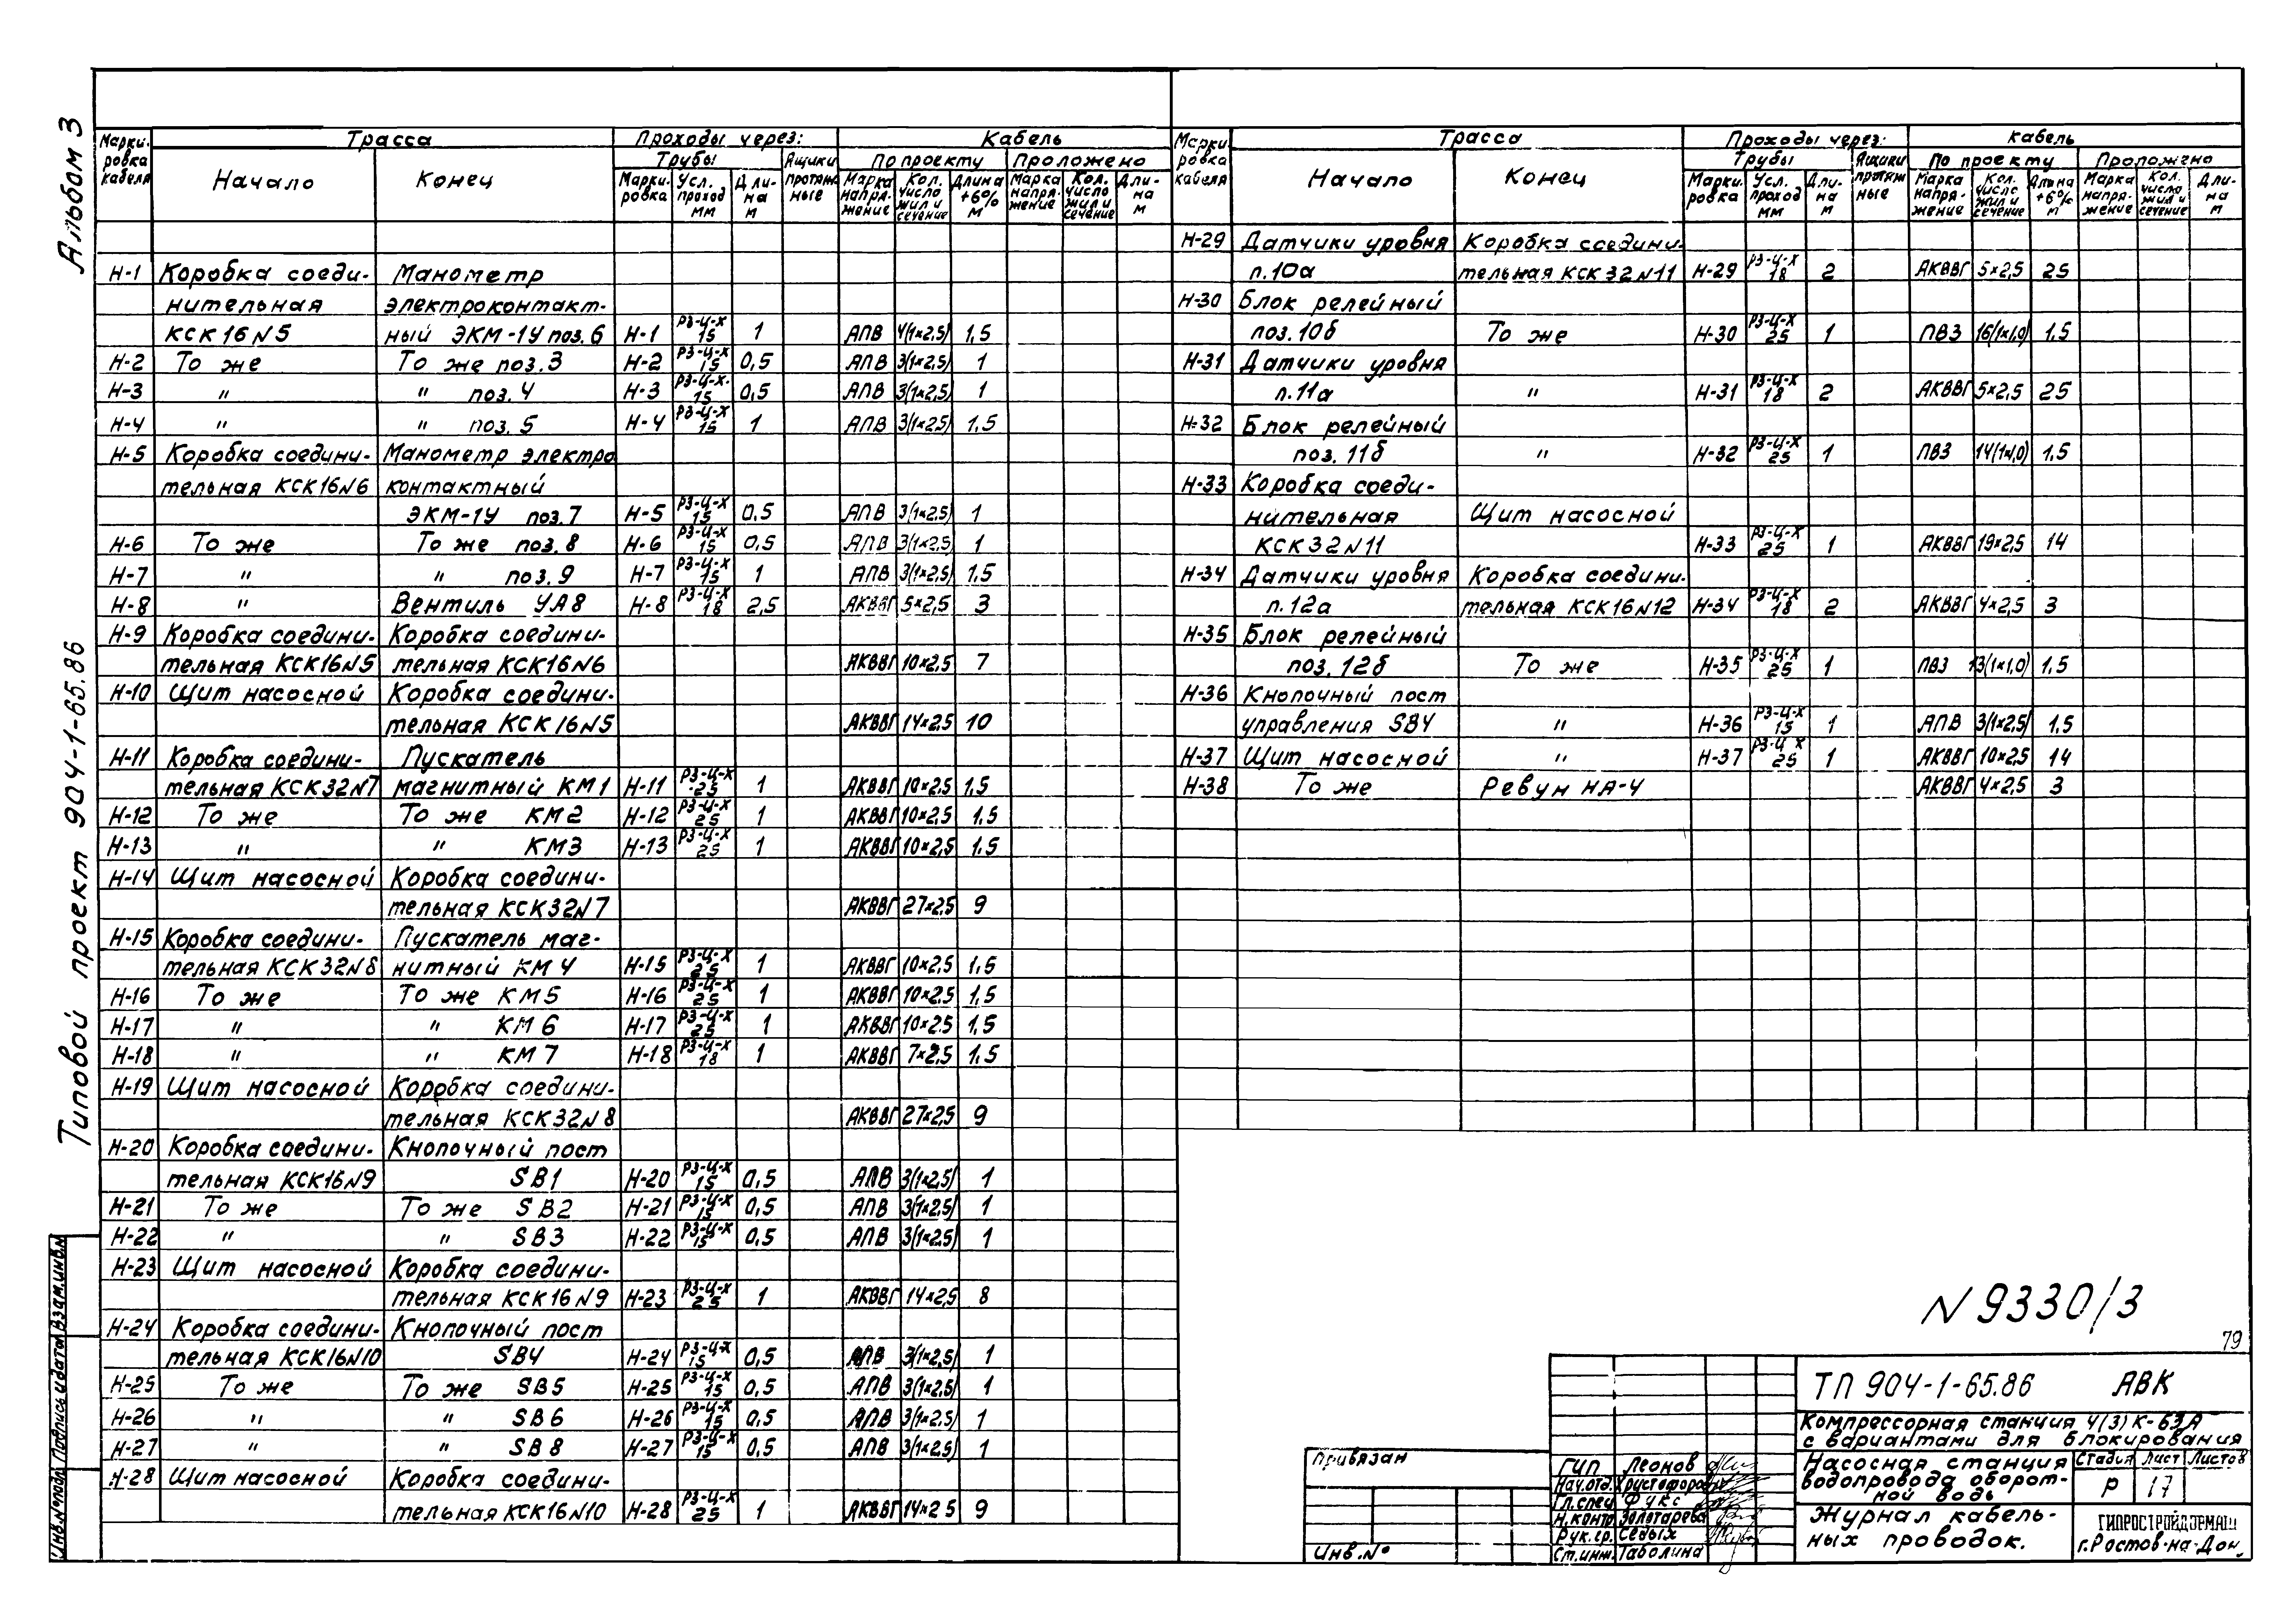 Альбом 3
Типовой проект 904-1-65.86
Марки-ровка кабеля | Трасса | Проходы через: | Кабель
Трубы | Ящики протяжные | По проекту | Проложено
Начало | Конец | Марки-ровка | Усл. проход мм | Дли-на м | Марка напря-жение | Кол. число жил и сечение | Длина +6% м | Марка напря-жение | Кол. число жил и сечение | Дли-на м
Н-1 Коробка соеди- Манометр
нительная электроконтакт-
КСК16N5 ный ЭКМ-1У поз.6 Н-1 РЗ-Ц-Х 15 1 АПВ 4(1×2,5) 1,5
Н-2 То же То же поз.3 Н-2 РЗ-Ц-Х 15 0,5 АПВ 3(1×2,5) 1
Н-3 " " поз.4 Н-3 РЗ-Ц-Х. 15 0,5 АПВ 3(1×2,5) 1
Н-4 " " поз.5 Н-4 РЗ-Ц-Х 15 1 АПВ 3(1×2,5) 1,5
Н-5 Коробка соедини- Манометр электро
тельная КСК16N6 контактный
ЭКМ-1У поз.7 Н-5 РЗ-Ц-Х 15 0,5 АПВ 3(1×2,5) 1
Н-6 То же То же поз.8 Н-6 РЗ-Ц-Х 15 0,5 АПВ 3(1×2,5) 1
Н-7 " " поз.9 Н-7 РЗ-Ц-Х 15 1 АПВ 3(1×2,5) 1,5
Н-8 " Вентиль УА8 Н-8 РЗ-Ц-Х 18 2,5 АКВВГ 5×2,5 3
Н-9 Коробка соедини- Коробка соедини-
тельная КСК16N5 тельная КСК16N6 АКВВГ 10×2,5 7
Н-10 Щит насосной Коробка соедини-
тельная КСК16N5 АКВВГ 14×2,5 10
Н-11 Коробка соедини- Пускатель
тельная КСК32N7 магнитный КМ1 Н-11 РЗ-Ц-Х 25 1 АКВВГ 10×2,5 1,5
Н-12 То же То же КМ2 Н-12 РЗ-Ц-Х 25 1 АКВВГ 10×2,5 1,5
Н-13 " " КМ3 Н-13 РЗ-Ц-Х 25 1 АКВВГ 10×2,5 1,5
Н-14 Щит насосной Коробка соедини-
тельная КСК32N7 АКВВГ 27×2,5 9
Н-15 Коробка соедини- Пускатель маг-
тельная КСК32N8 нитный КМ4 Н-15 РЗ-Ц-Х 25 1 АКВВГ 10×2,5 1,5
Н-16 То же То же КМ5 Н-16 РЗ-Ц-Х 25 1 АКВВГ 10×2,5 1,5
Н-17 " " КМ6 Н-17 РЗ-Ц-Х 25 1 АКВВГ 10×2,5 1,5
Н-18 " " КМ7 Н-18 РЗ-Ц-Х 18 1 АКВВГ 7×2,5 1,5
Н-19 Щит насосной Коробка соедини-
тельная КСК32N8 АКВВГ 27×2,5 9
Н-20 Коробка соедини- Кнопочный пост
тельная КСК16N9 SB1 Н-20 РЗ-Ц-Х 15 0,5 АПВ 3(1×2,5) 1
Н-21 То же То же SB2 Н-21 РЗ-Ц-Х 15 0,5 АПВ 3(1×2,5) 1
Н-22 " " SB3 Н-22 РЗ-Ц-Х 15 0,5 АПВ 3(1×2,5) 1
Н-23 Щит насосной Коробка соедини-
тельная КСК16N9 Н-23 РЗ-Ц-Х 25 1 АКВВГ 14×2,5 8
Н-24 Коробка соедини- Кнопочный пост
тельная КСК16N10 SB4 Н-24 РЗ-Ц-Х 15 0,5 АПВ 3(1×2,5) 1
Н-25 То же То же SB5 Н-25 РЗ-Ц-Х 15 0,5 АПВ 3(1×2,5) 1
Н-26 " " SB6 Н-26 РЗ-Ц-Х 15 0,5 АПВ 3(1×2,5) 1
Н-27 " " SB8 Н-27 РЗ-Ц-Х 15 0,5 АПВ 3(1×2,5) 1
Н-28 Щит насосной Коробка соедини-
тельная КСК16N10 Н-28 РЗ-Ц-Х 25 1 АКВВГ 14×2 5 9
Марки-ровка кабеля | Трасса | Проходы через: | Кабель
Трубы | Ящики протяжные | По проекту | Проложено
Начало | Конец | Марки-ровка | Усл. проход мм | Дли-на м | Марка напря-жение | Кол. число жил и сечение | Длина +6% м | Марка напря-жение | Кол. число жил и сечение | Дли-на м
Н-29 Датчики уровня Коробка соедини-
п.10а тельная КСК32N11 Н-29 РЗ-Ц-Х 18 2 АКВВГ 5×2,5 25
Н-30 Блок релейный
поз.10б То же Н-30 РЗ-Ц-Х 25 1 ПВ3 16(1×1,0) 1,5
Н-31 Датчики уровня
п.11а " Н-31 РЗ-Ц-Х 18 2 АКВВГ 5×2,5 25
Н-32 Блок релейный
поз.11б " Н-32 РЗ-Ц-Х 25 1 ПВ3 14(1×1,0) 1,5
Н-33 Коробка соеди-
нительная Щит насосной
КСК32N11 Н-33 РЗ-Ц-Х 25 1 АКВВГ 19×2,5 14
Н-34 Датчики уровня Коробка соедини-
п.12а тельная КСК16N12 Н-34 РЗ-Ц-Х 18 2 АКВВГ 4×2,5 3
Н-35 Блок релейный
поз.12б То же Н-35 РЗ-Ц-Х 25 1 ПВ3 13(1×1,0) 1,5
Н-36 Кнопочный пост
управления SB4 " Н-36 РЗ-Ц-Х 15 1 АПВ 3(1×2,5) 1,5
Н-37 Щит насосной " Н-37 РЗ-Ц Х 25 1 АКВВГ 10×2,5 14
Н-38 То же Ревун НА-4 АКВВГ 4×2,5 3
N 9330/3
79
ТП 904-1-65.86 АВК
Компрессорная станция 4(3)К-63А
с вариантами для блокирования
Насосная станция
водопровода оборот-
ной воды
Стадия Лист Листов
Р 17
Журнал кабель-
ных проводок.
ГИПРОСТРОЙДОРМАШ
г.Ростов-на-Дон.
Привязан
Инв.№
ГИП Леонов
Нач.отд. Христофоров
Гл.спец Фукс
Н.контр Золотарева
Рук.гр. Седых
Ст.инж. Таболина
Инв.№подл. Подпись и дата Взам.инв.№